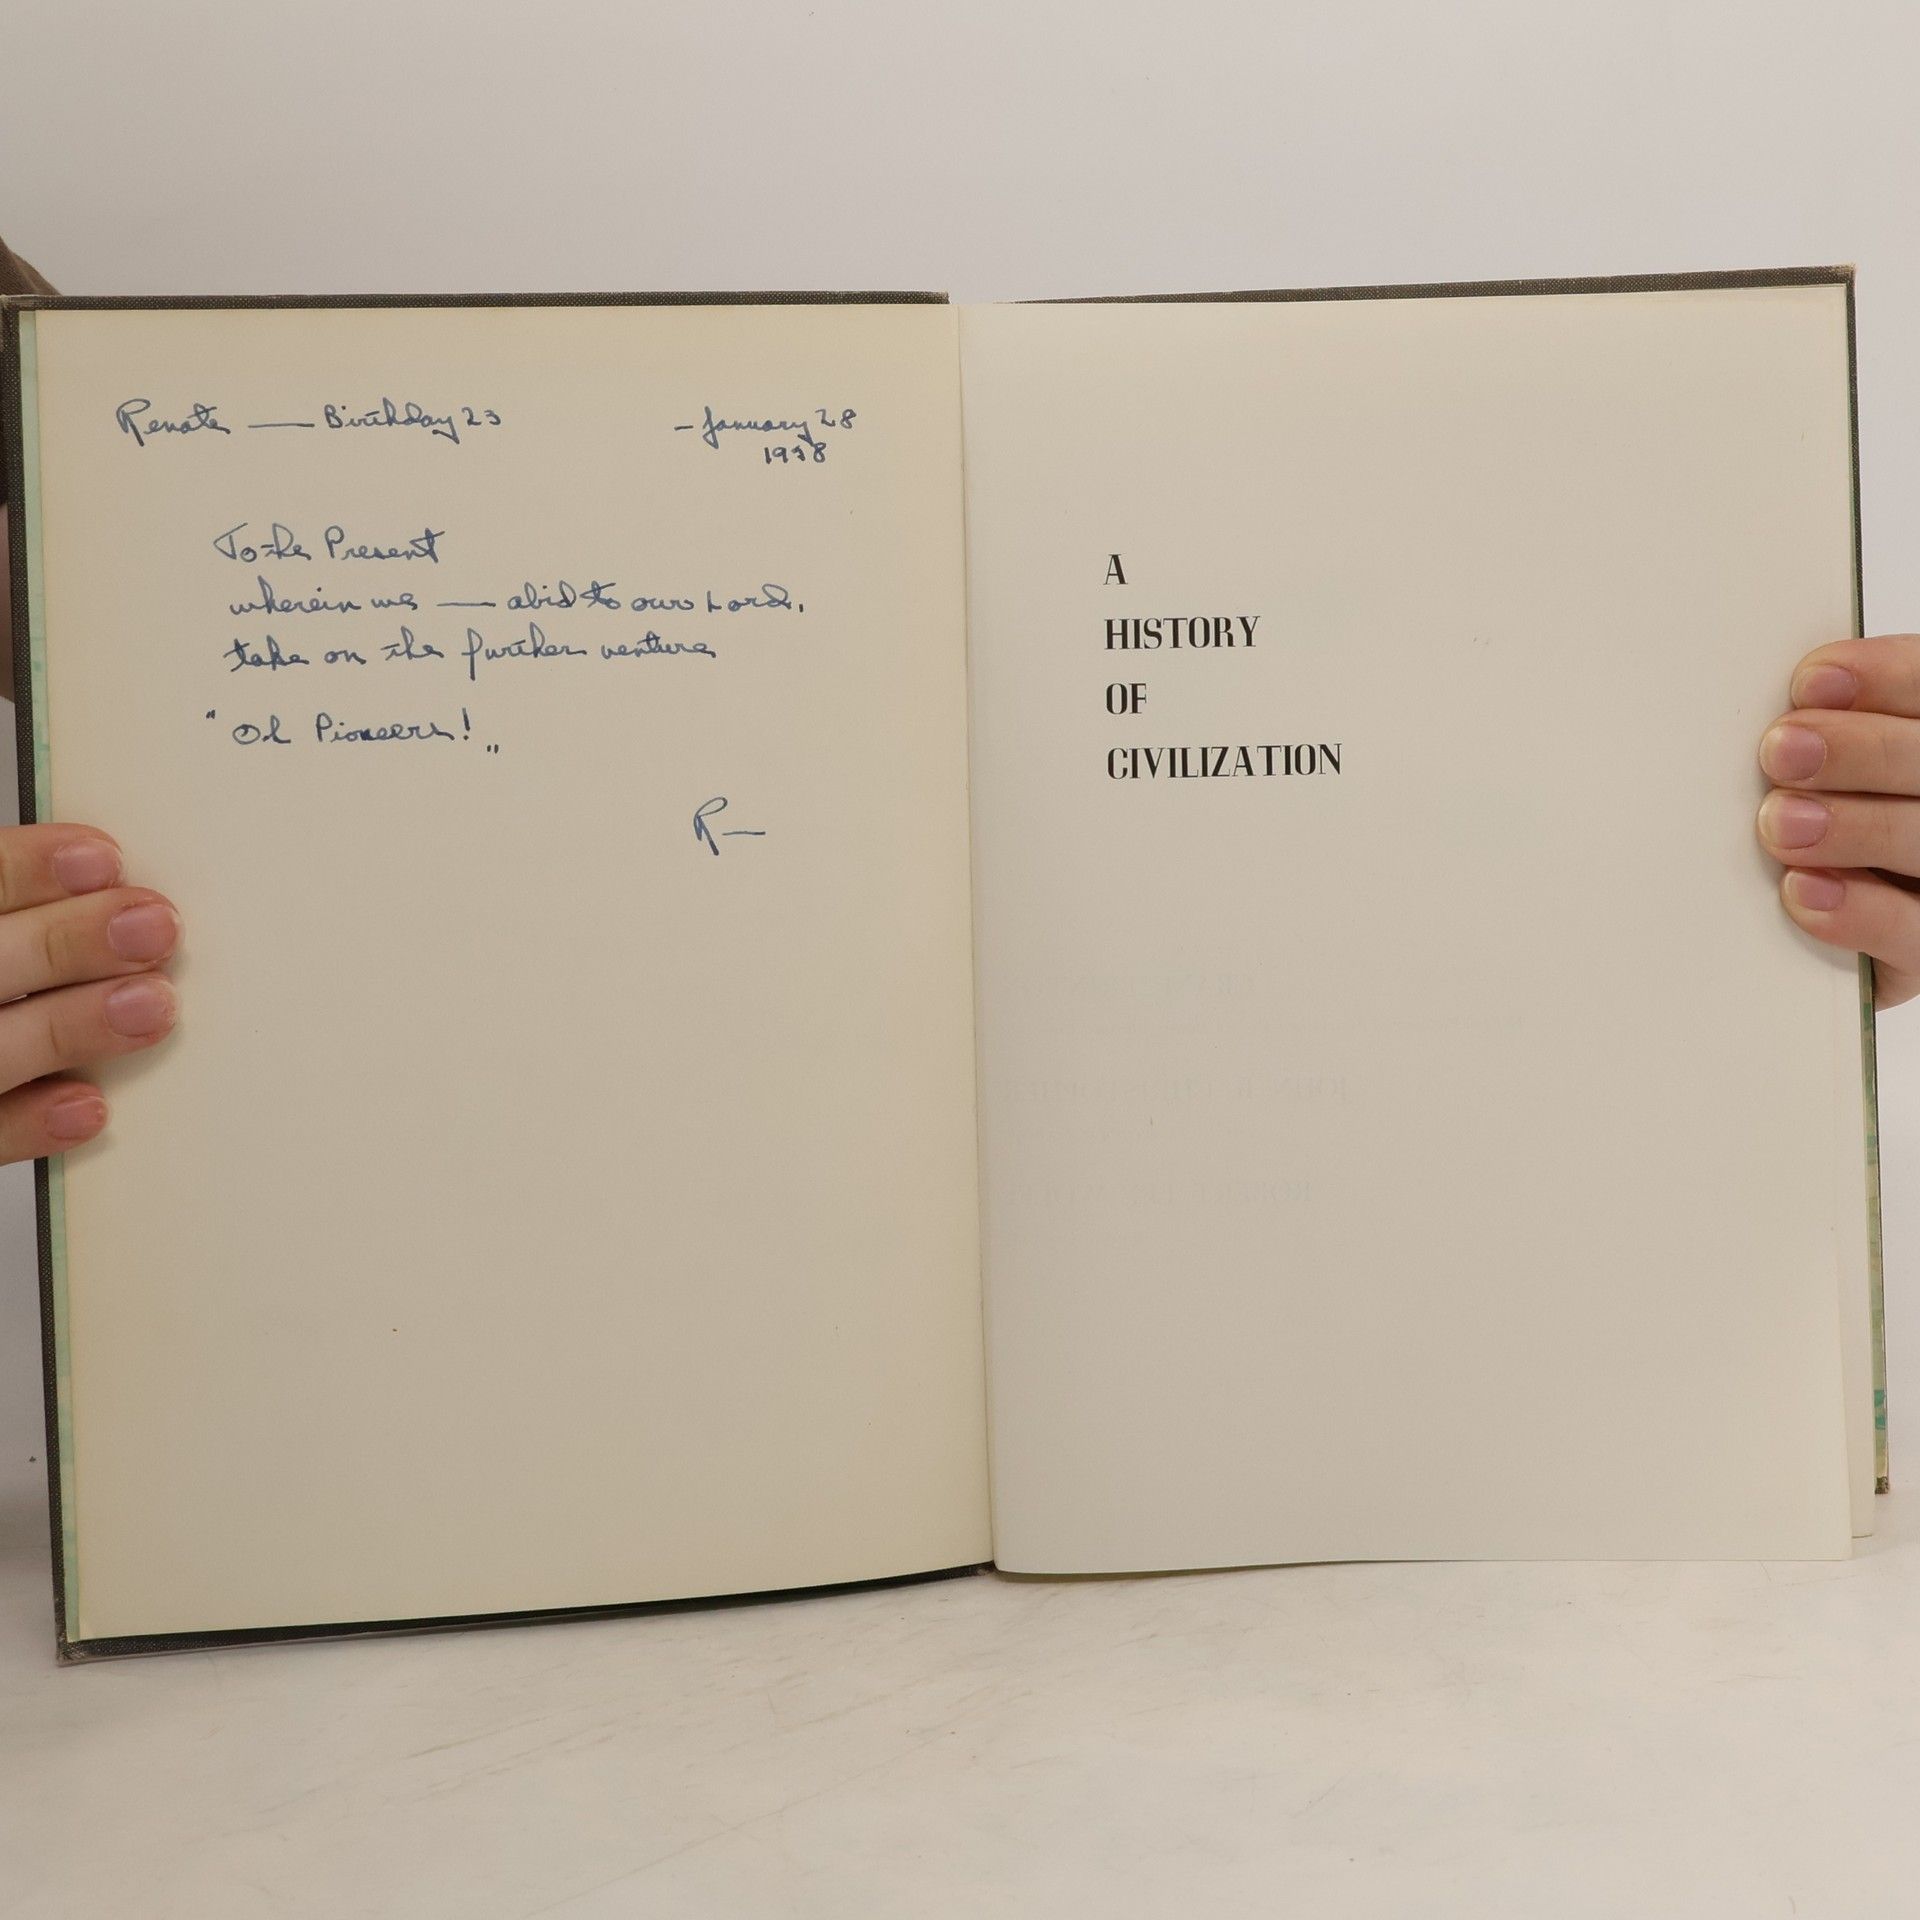 Renate — Birthday 23 – January 28
1978
To the Present
wherein we — abid to our Lord,
take on the further venture
"Oh Pioneers!„
R—
A
HISTORY
OF
CIVILIZATION